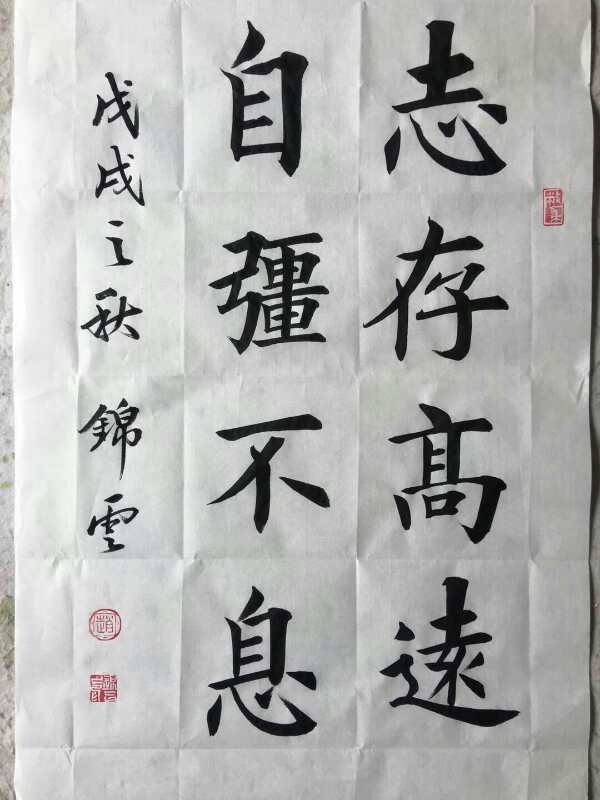 志存髙遠
自彊不息
戊戌之秋 錦雲